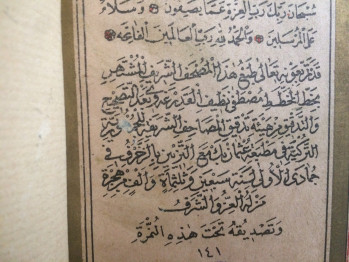 سُبْحَانَ رَبِّكَ رَبِّ الْعِزَّةِ عَمَّا يَصِفُونَ وَسَلَامٌ
عَلَى الْمُرْسَلِينَ وَالْحَمْدُ لِلَّهِ رَبِّ الْعَالَمِينَ الْفَاتِحَة
قد تم بعونه تعالى طبع هذا المصحف الشريف المشتهر
بخط الخطاط مصطفى نظيف القدرغه لى بعد التصحيح
والتدقيق من هيئة تدقيق المصاحف الشريفة للجمهورية
التركية فى مطبعة عثمان بك مع التزيين بالزخرف فى
جمادى الأولى لسنة سبعين وثلثمائة والف من هجرة
من له العز والشرف
وتصديقه تحت هذه النمرة
١٤١